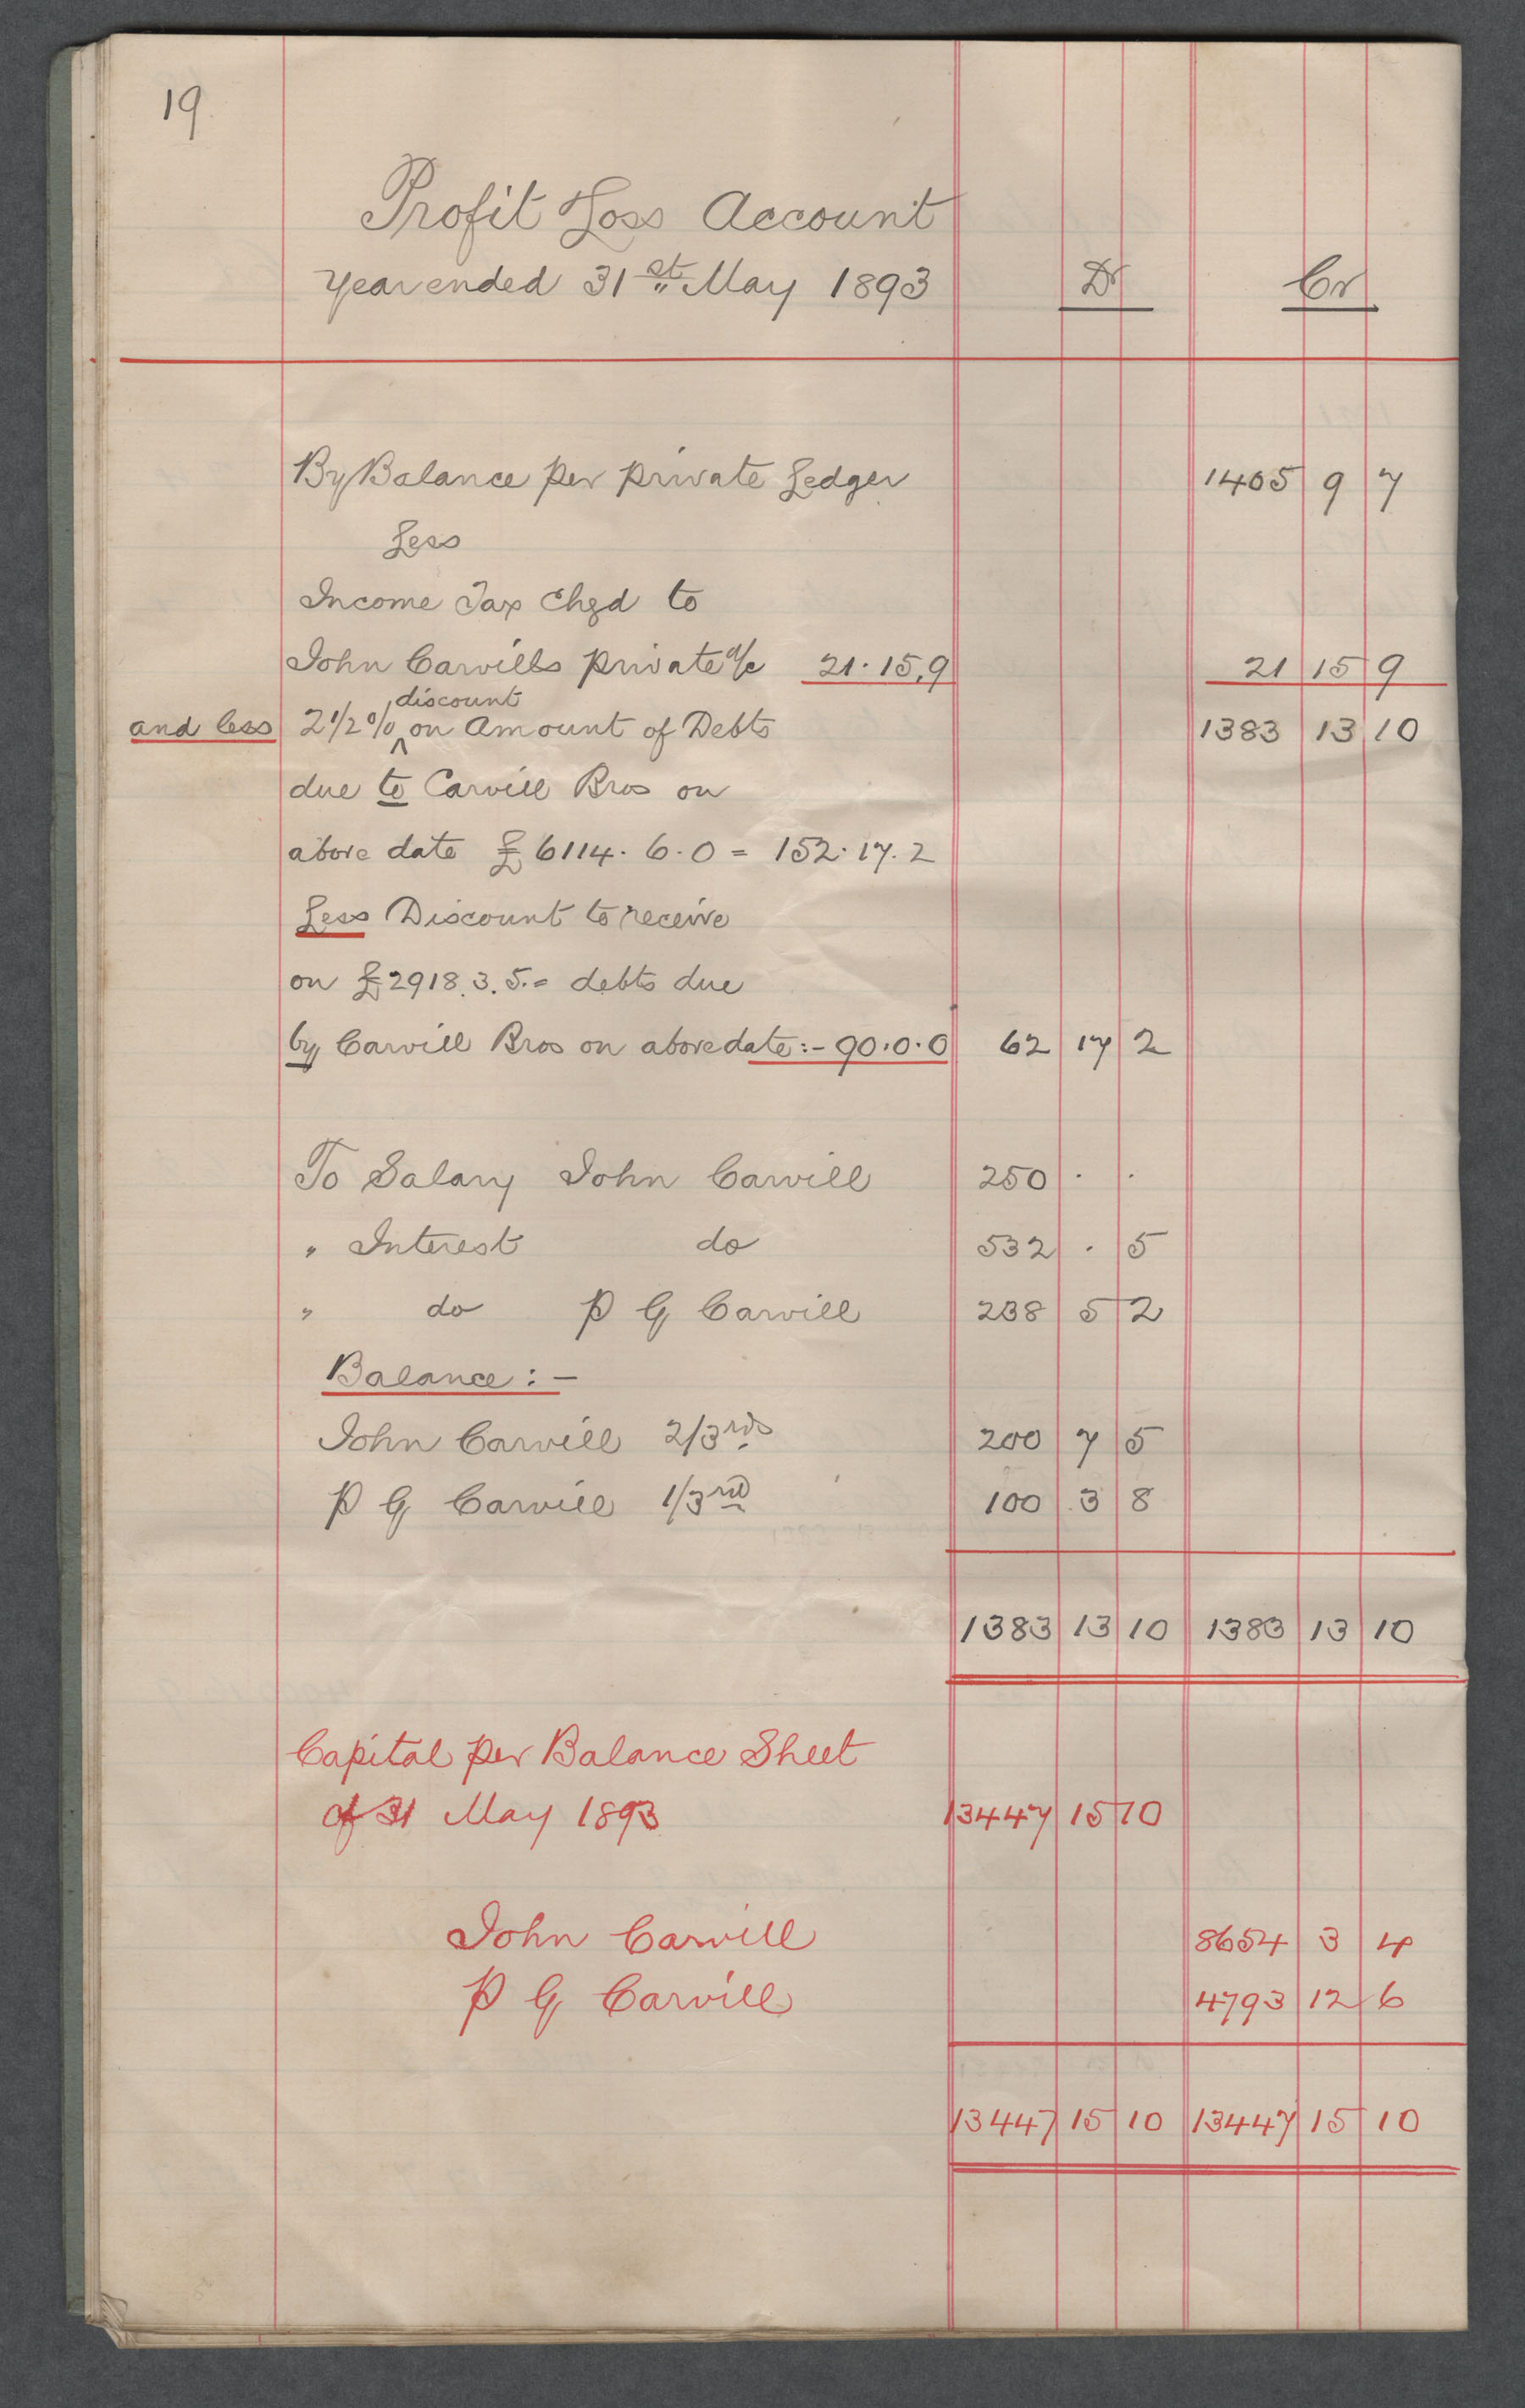 19
Profit Loss Account
Year ended 31st May 1893 Dr Cr
By Balance per private Ledger 1405 9 7
Less
Income Tax Chgd to
John Carvills private a/c 21.15.9 21 15 9
discount
and less 2 1/2 % on Amount of Debts 1383 13 10
due to Carvill Bros on
above date £6114.6.0 = 152.17.2
Less Discount to receive
on £2918.3.5. = debts due
by Carvill Bros on above date:- 90.0.0 62 17 2
To Salary John Carvill 250 . .
" Interest do 532 . 5
" do P G Carvill 238 5 2
Balance:-
John Carvill 2/3rds 200 7 5
P G Carvill 1/3rd 100 3 8
1383 13 10 1383 13 10
Capital per Balance Sheet
of 31 May 1893 13447 15 10
John Carvill 8654 3 4
P G Carvill 4793 12 6
13447 15 10 13447 15 10